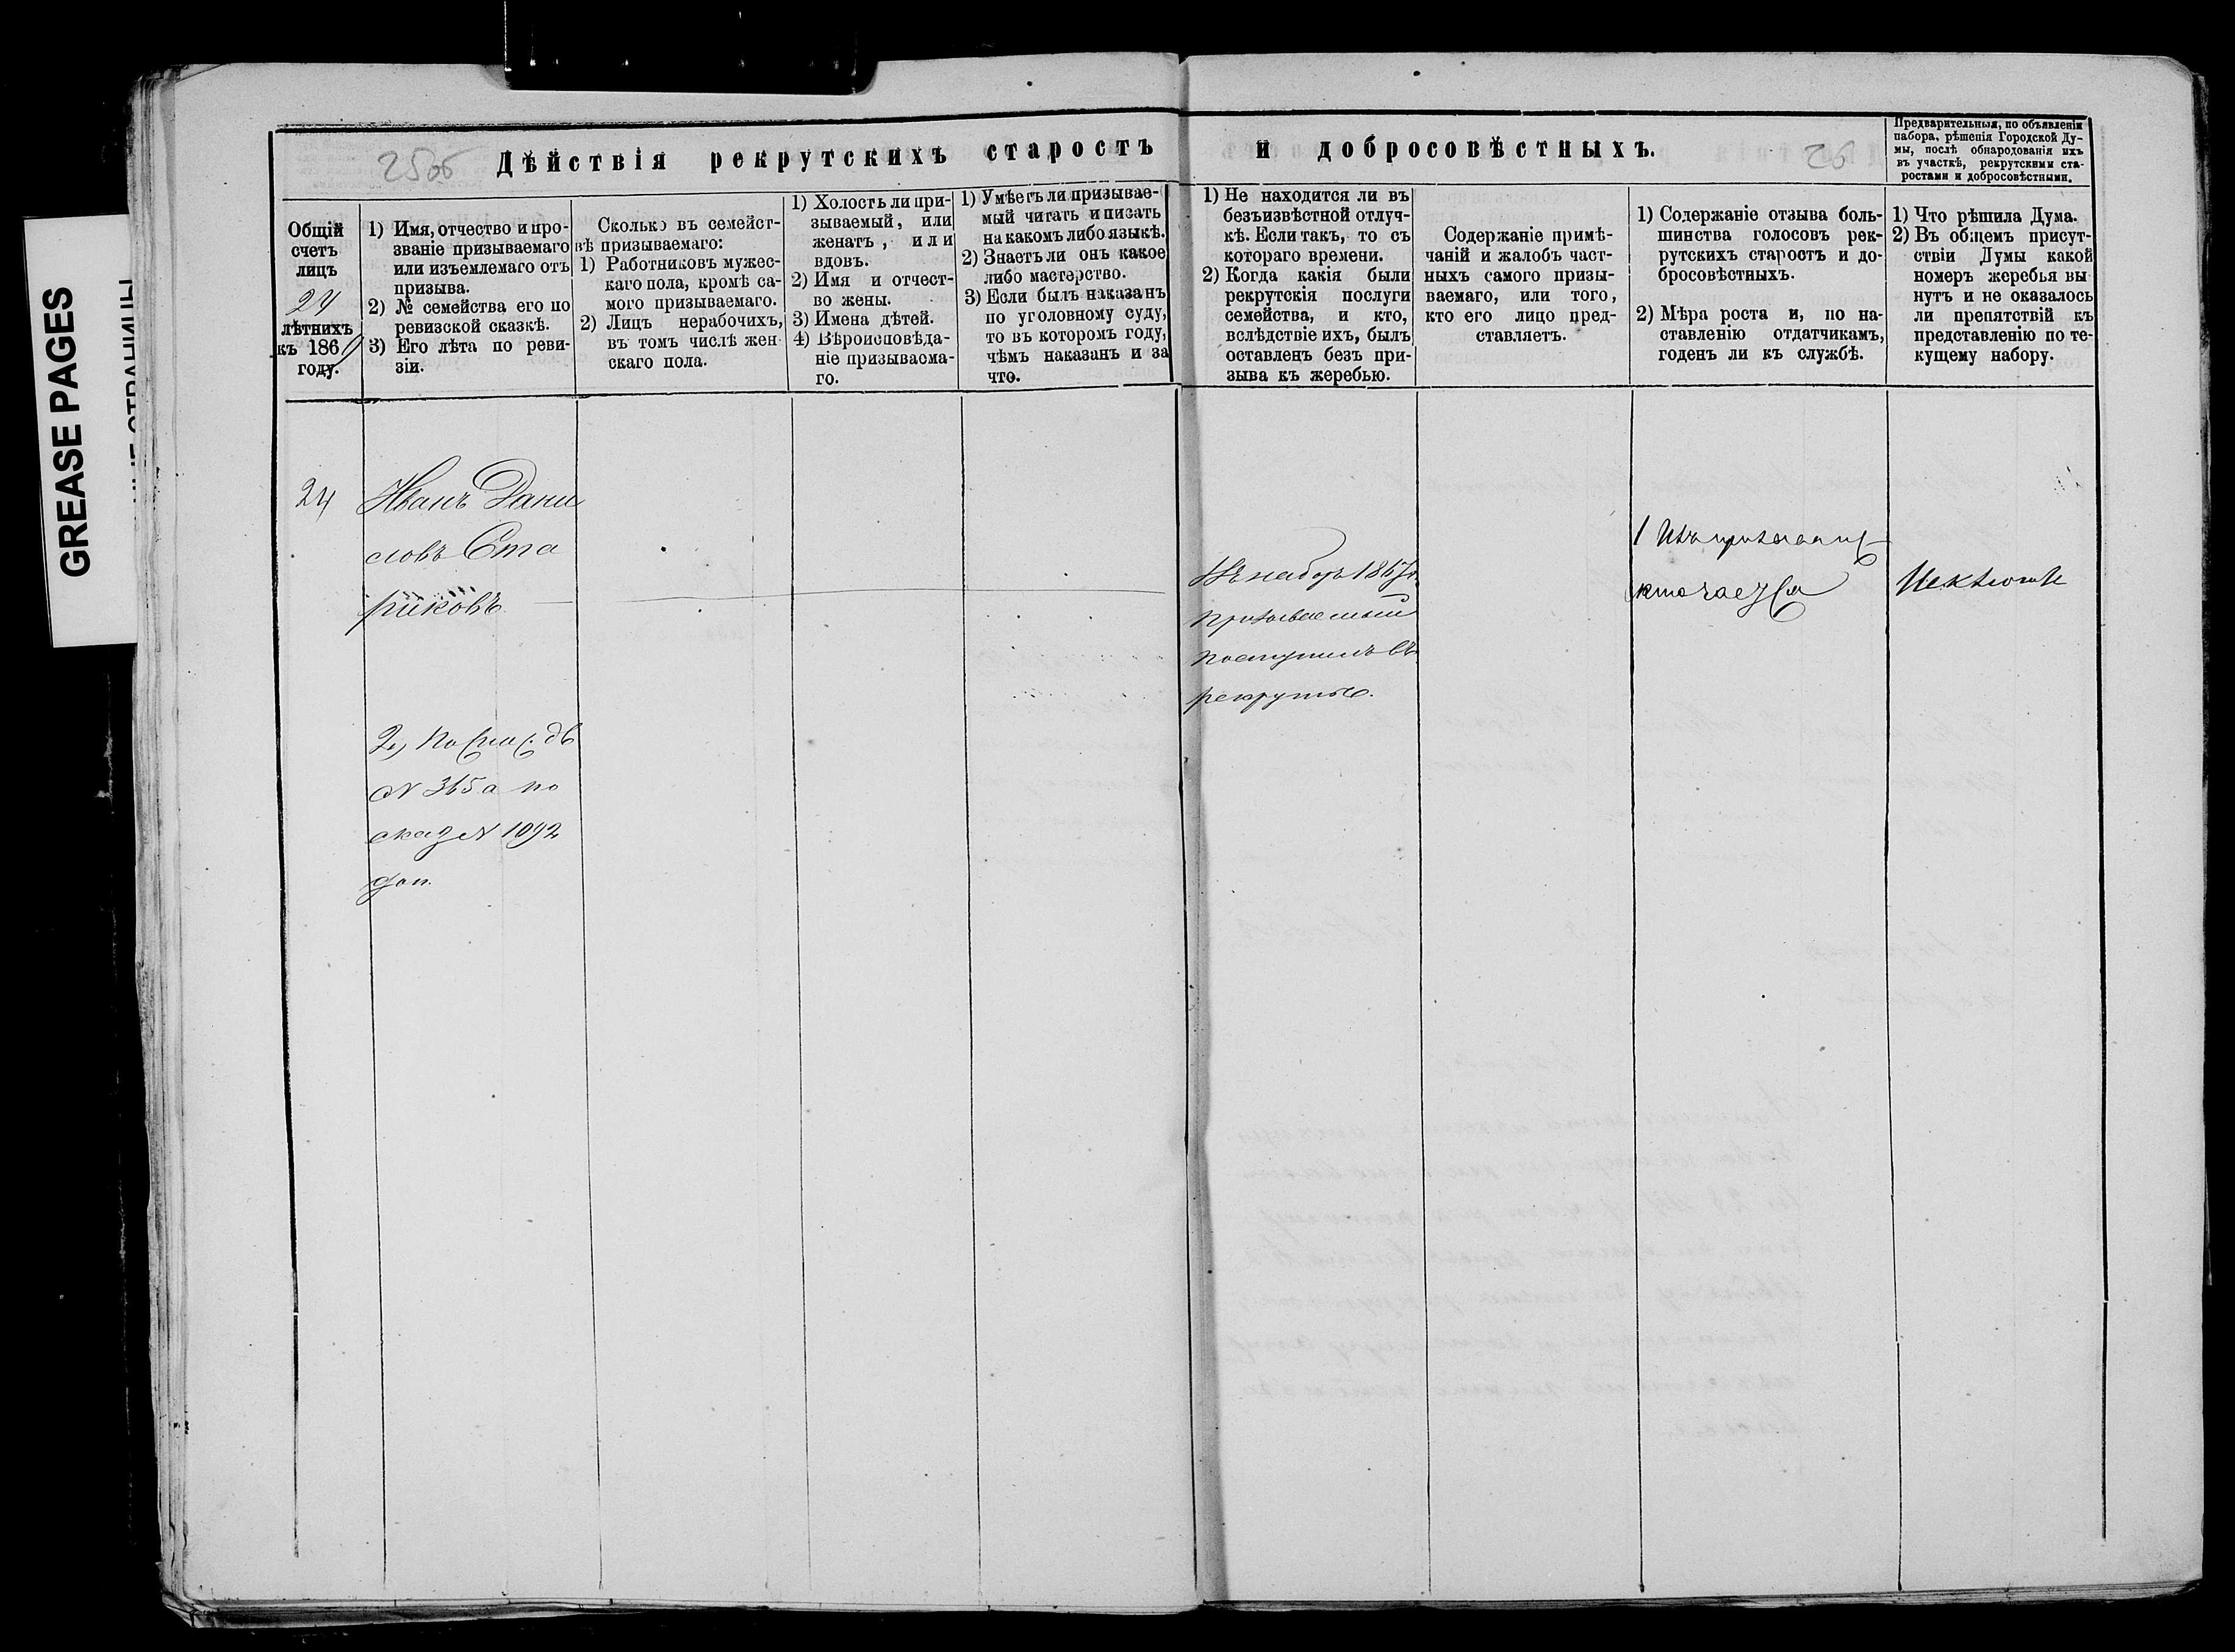 GREASE PAGES
25об
Дѣйствія рекрутскихъ старостъ и добросовѣстныхъ.
26
Предварительныя, по объявленіи
набора, рѣшенія Городской Ду-
мы, послѣ обнародованія ихъ
въ участкѣ, рекрутскими ста-
ростами и добросовѣстными.
Общій
счетъ
лицъ
24
лѣтнихъ
къ 1869
году.
1) Имя, отчество и про-
званіе призываемаго
или изъемлемаго отъ
призыва.
2) № семейства его по
ревизской сказкѣ.
3) Его лѣта по реви-
зіи.
Сколько въ семейст-
вѣ призываемаго:
1) Работниковъ мужес-
каго пола, кромѣ са-
мого призываемаго.
2) Лицъ нерабочихъ,
въ томъ числѣ жен
скаго пола.
1) Холостъ ли при-
зываемый, или
женатъ, или
вдовъ.
2) Имя и отчест-
во жены.
3) Имена дѣтей.
4) Вѣроисповѣда-
ніе призываема-
го.
1) Умѣетъ ли призывае-
мый читать и писать
на какомъ либо языкѣ.
2) Знаетъ ли онъ какое
либо мастерство.
3) Если былъ наказанъ
по уголовному суду,
то въ которомъ году,
чѣмъ наказанъ и за
что.
1) Не находится ли въ
безъизвѣстной отлуч-
кѣ. Если такъ, то съ
котораго времени.
2) Когда какія были
рекрутскія послуги
семейства, и кто,
вслѣдствіе ихъ, былъ
оставленъ безъ при-
зыва къ жеребью.
Содержаніе примѣ-
чаній и жалобъ част-
ныхъ самого призы-
ваемаго, или того,
кто его лицо пред-
ставляетъ.
1) Содержаніе отзыва боль-
шинства голосовъ рек-
рутскихъ старостъ и до-
бросовѣстныхъ.
2) Мѣра роста и, по на-
ставленію отдатчикамъ,
годенъ ли къ службѣ.
1) Что рѣшила Дума.
2) Въ общемъ присут-
ствіи Думы какой
номеръ жеребья вы
нутъ и не оказалось
ли препятствій къ
представленію по те-
кущему набору.
24
Иванъ Дани
ловъ Ста
риковъ
2) По
№ 365 а по
сказ № 1092
доп.
Въ наборъ 1867
призываемый
поступилъ въ
рекруты.
1 Изъ призыва
ключается
Исключить